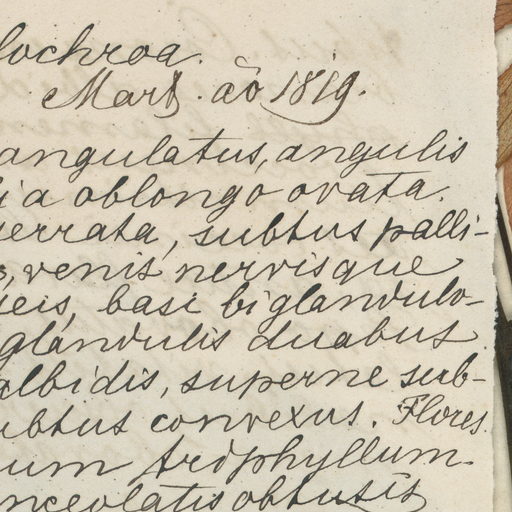 lochroa.
Mart. ào 1819.
angulatus, angulis
ia oblongo ovata.
serrata, subtus palli-
, venis nervisque
ieis, basi biglandulo-
glandulis duabus
albidis, superne sub-
ubtus convexus. Flores
um triphyllum
nceolatis obtusis